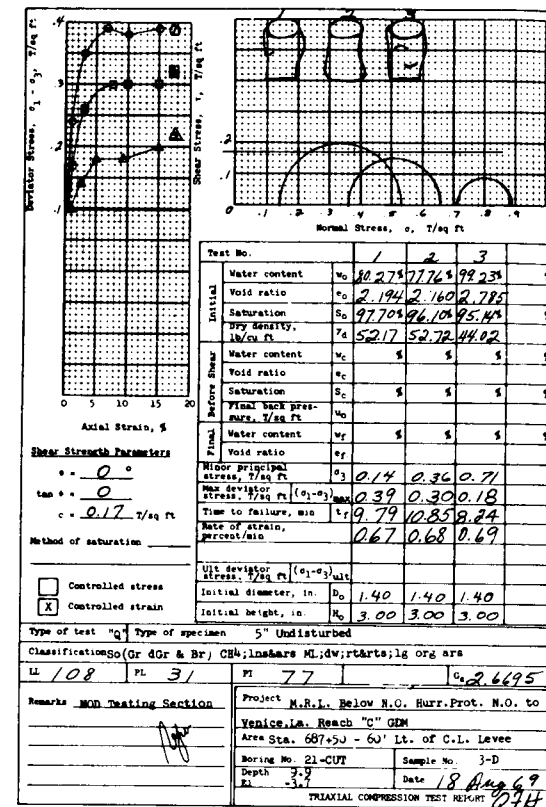 Deviator Stress, σ1 - σ3, T/sq ft
.4
.3
.2
.1
0
0 5 10 15 20
Axial Strain, %
Shear Stress, τ, T/sq ft
.2
.1
0 .1 .2 .3 .4 .5 .6 .7 .8 .9
Normal Stress, σ, T/sq ft
Shear Strength Parameters
φ = 0 °
tan φ = 0
c = 0.17 T/sq ft
Method of saturation
Controlled stress
X Controlled strain
Test No. 1 2 3
Initial
Water content w₀ 80.27% 77.76% 99.23%
Void ratio e₀ 2.194 2.160 2.785
Saturation S₀ 97.70% 96.10% 95.14%
Dry density, lb/cu ft γd 52.17 52.72 44.02
Before Shear
Water content wc % % %
Void ratio ec
Saturation Sc % % %
Final back pressure, T/sq ft u₀
Final
Water content wf % % %
Void ratio ef
Minor principal stress, T/sq ft σ3 0.14 0.36 0.71
Max deviator stress, T/sq ft (σ1-σ3)max 0.39 0.30 0.18
Time to failure, min tf 9.79 10.85 8.24
Rate of strain, percent/min 0.67 0.68 0.69
Ult deviator stress, T/sq ft (σ1-σ3)ult
Initial diameter, in. D₀ 1.40 1.40 1.40
Initial height, in. H₀ 3.00 3.00 3.00
Type of test "Q" Type of specimen 5" Undisturbed
Classification So(Gr dGr & Br) CH4;lns&ars ML;dw;rt&rts;lg org ars
LL 108 PL 31 PI 77 Gs 2.6695
Remarks MOD Testing Section
Project M.R.L. Below N.O. Hurr.Prot. N.O. to
Venice.La. Reach "C" GDM
Area Sta. 687+50 - 60' Lt. of C.L. Levee
Boring No. 21-CUT Sample No. 3-D
Depth 9.9
El -3.7
Date 18 Aug 69
TRIAXIAL COMPRESSION TEST REPORT